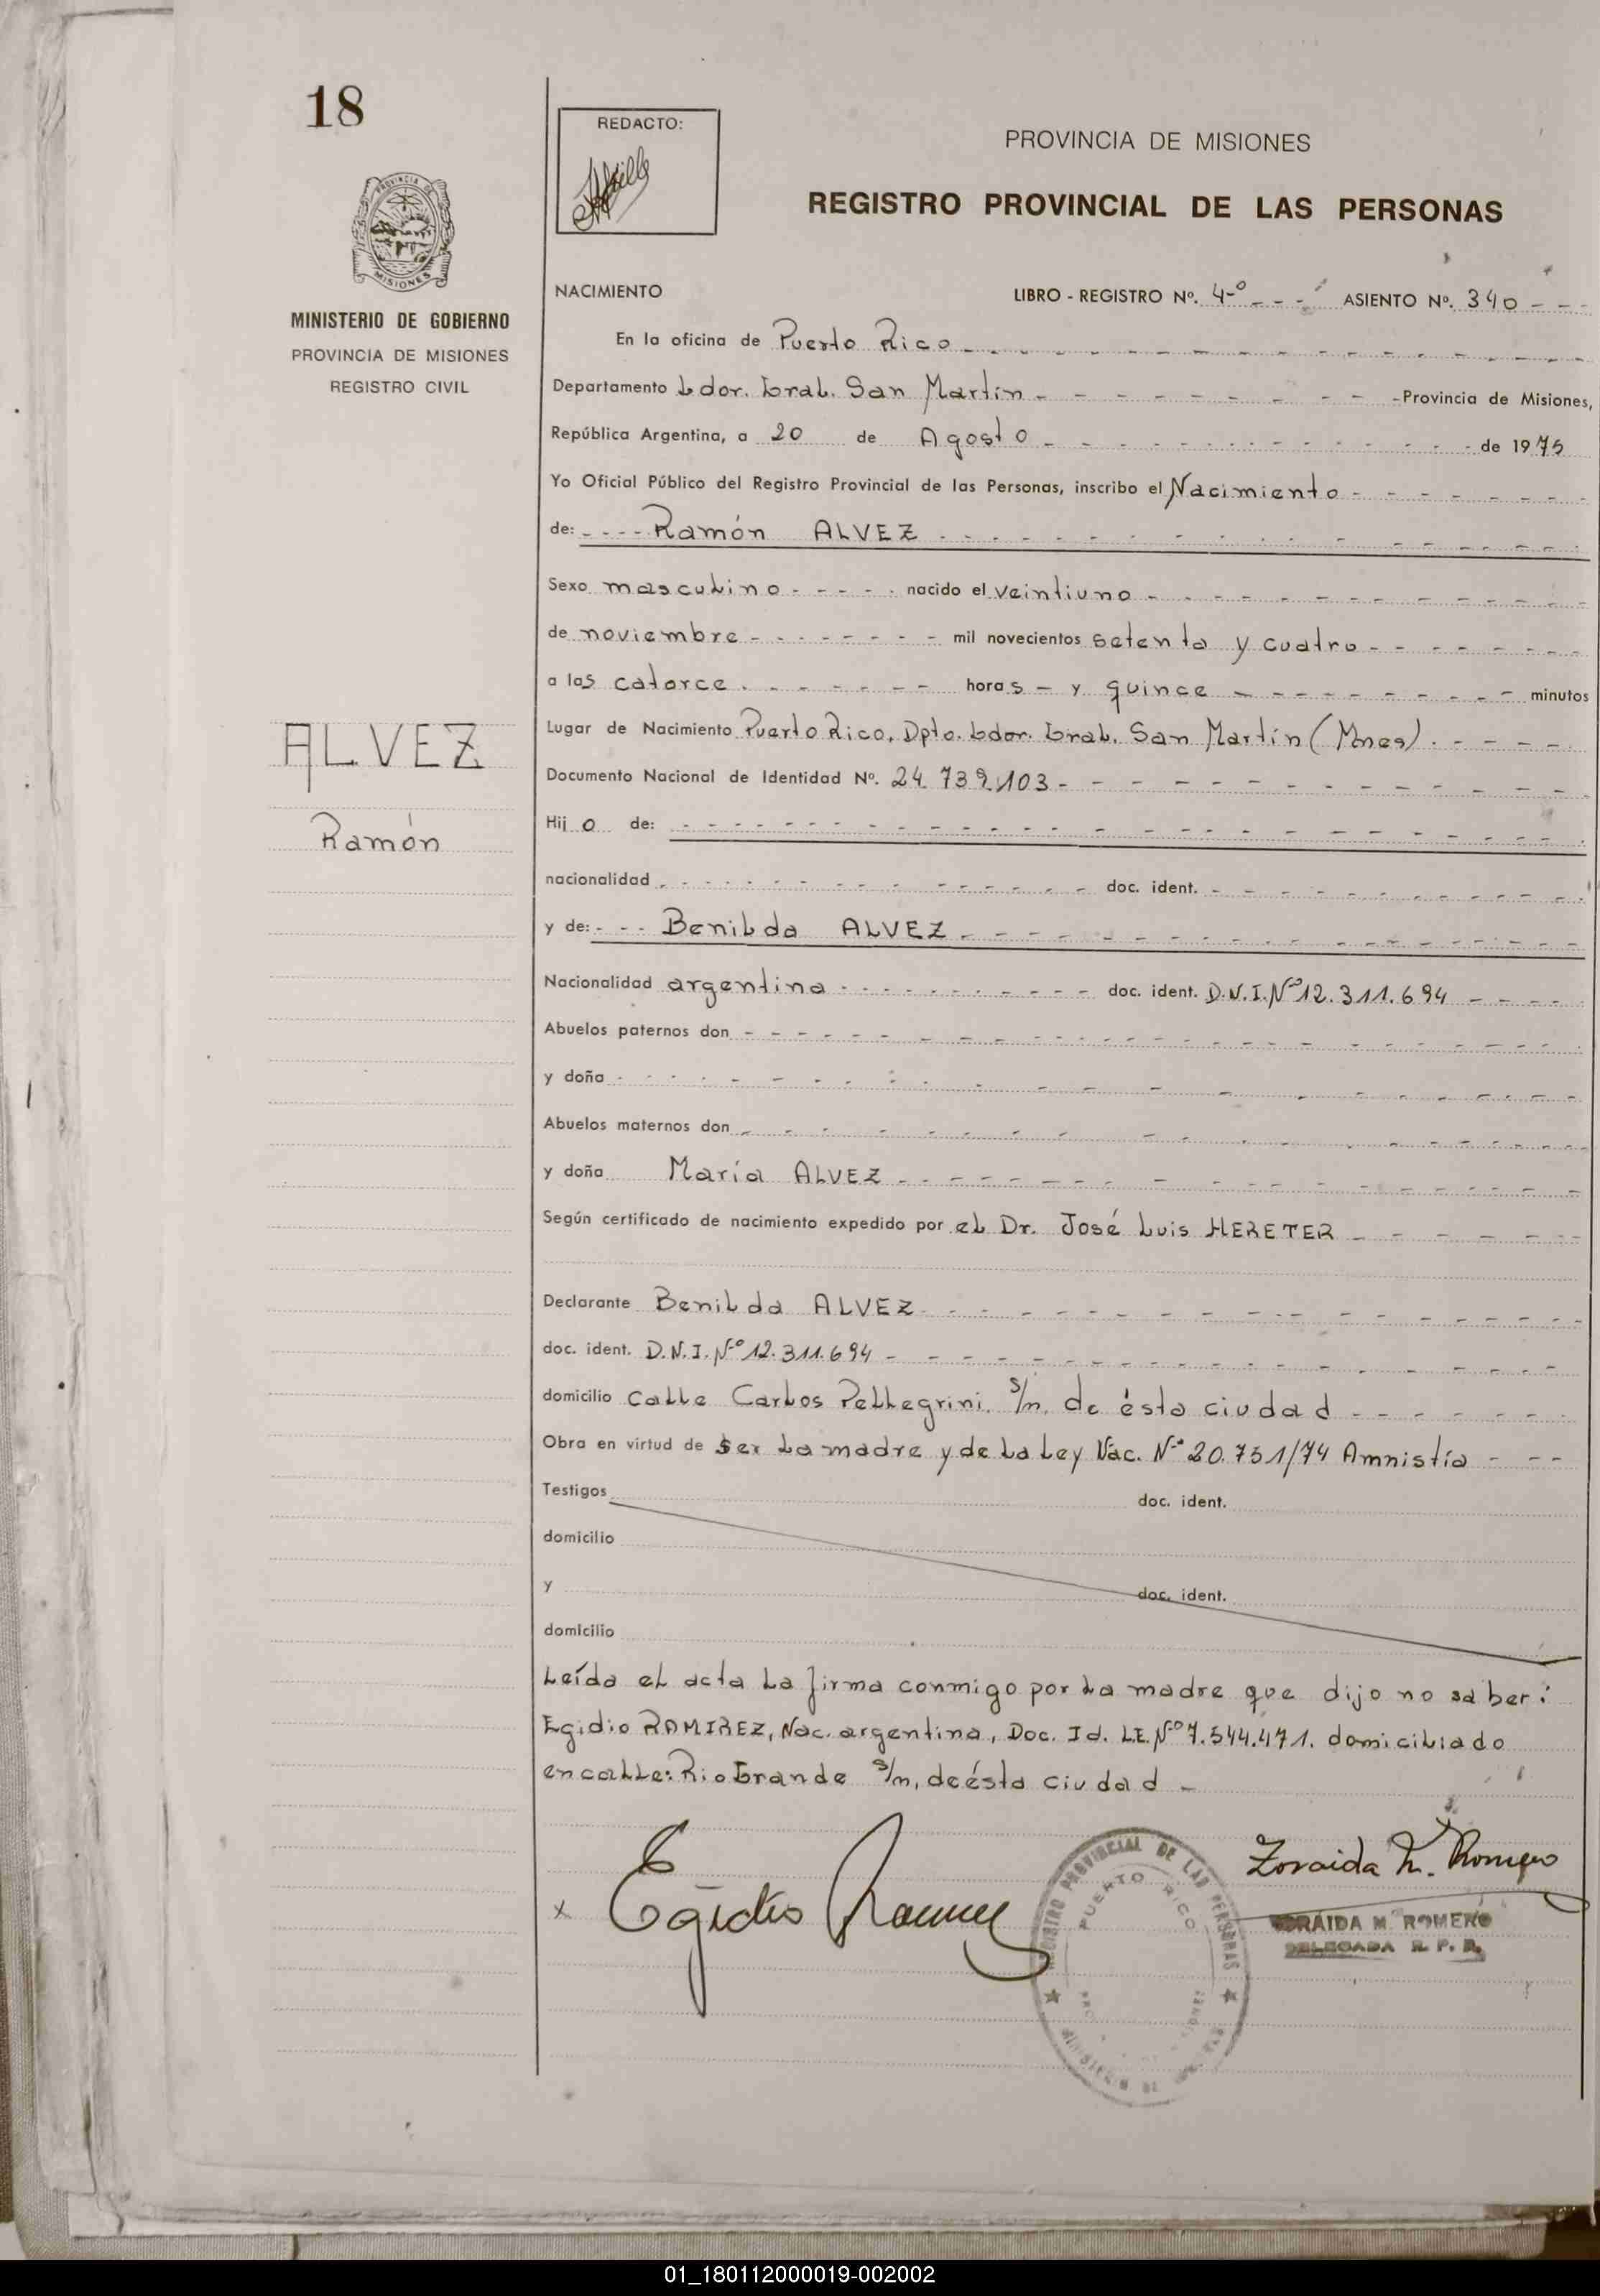 18
REDACTO:
PROVINCIA DE MISIONES
REGISTRO PROVINCIAL DE LAS PERSONAS
PROVINCIA DE
MISIONES
MINISTERIO DE GOBIERNO
PROVINCIA DE MISIONES
REGISTRO CIVIL
NACIMIENTO LIBRO - REGISTRO Nº. 4º - - - ASIENTO Nº. 340 - - -
En la oficina de Puerto Rico
Departamento Ldor. Gral. San Martín - Provincia de Misiones,
República Argentina, a 20 de Agosto de 1975
Yo Oficial Público del Registro Provincial de las Personas, inscribo el Nacimiento
de: Ramón ALVEZ
Sexo masculino nacido el veintiuno
de noviembre mil novecientos setenta y cuatro
a las catorce horas - y quince minutos
Lugar de Nacimiento Puerto Rico, Dpto. Ldor. Gral. San Martín (Mnes).
Documento Nacional de Identidad Nº. 24.739.103
Hijo de:
nacionalidad doc. ident.
y de: Benilda ALVEZ
Nacionalidad argentina doc. ident. D.N.I. Nº 12.311.694
Abuelos paternos don
y doña
Abuelos maternos don
y doña María ALVEZ
Según certificado de nacimiento expedido por el Dr. José Luis HERETER
Declarante Benilda ALVEZ
doc. ident. D.N.I. Nº 12.311.694
domicilio calle Carlos Pellegrini s/n. de ésta ciudad
Obra en virtud de ser la madre y de la Ley Nac. Nº 20.751/74 Amnistía
Testigos doc. ident.
domicilio
y doc. ident.
domicilio
Leída el acta la firma conmigo por la madre que dijo no saber:
Egidio RAMIREZ, Nac. argentina, Doc. Id. L.E. Nº 7.544.471. domiciliado
en calle: Rio Grande s/n, de ésta ciudad -
ALVEZ
Ramón
x Egidio Ramirez
REGISTRO PROVINCIAL DE LAS PERSONAS
PUERTO RICO
Zoraida M. Romero
ZORAIDA M. ROMERO
DELEGADA R. P. P.
01_180112000019-002002